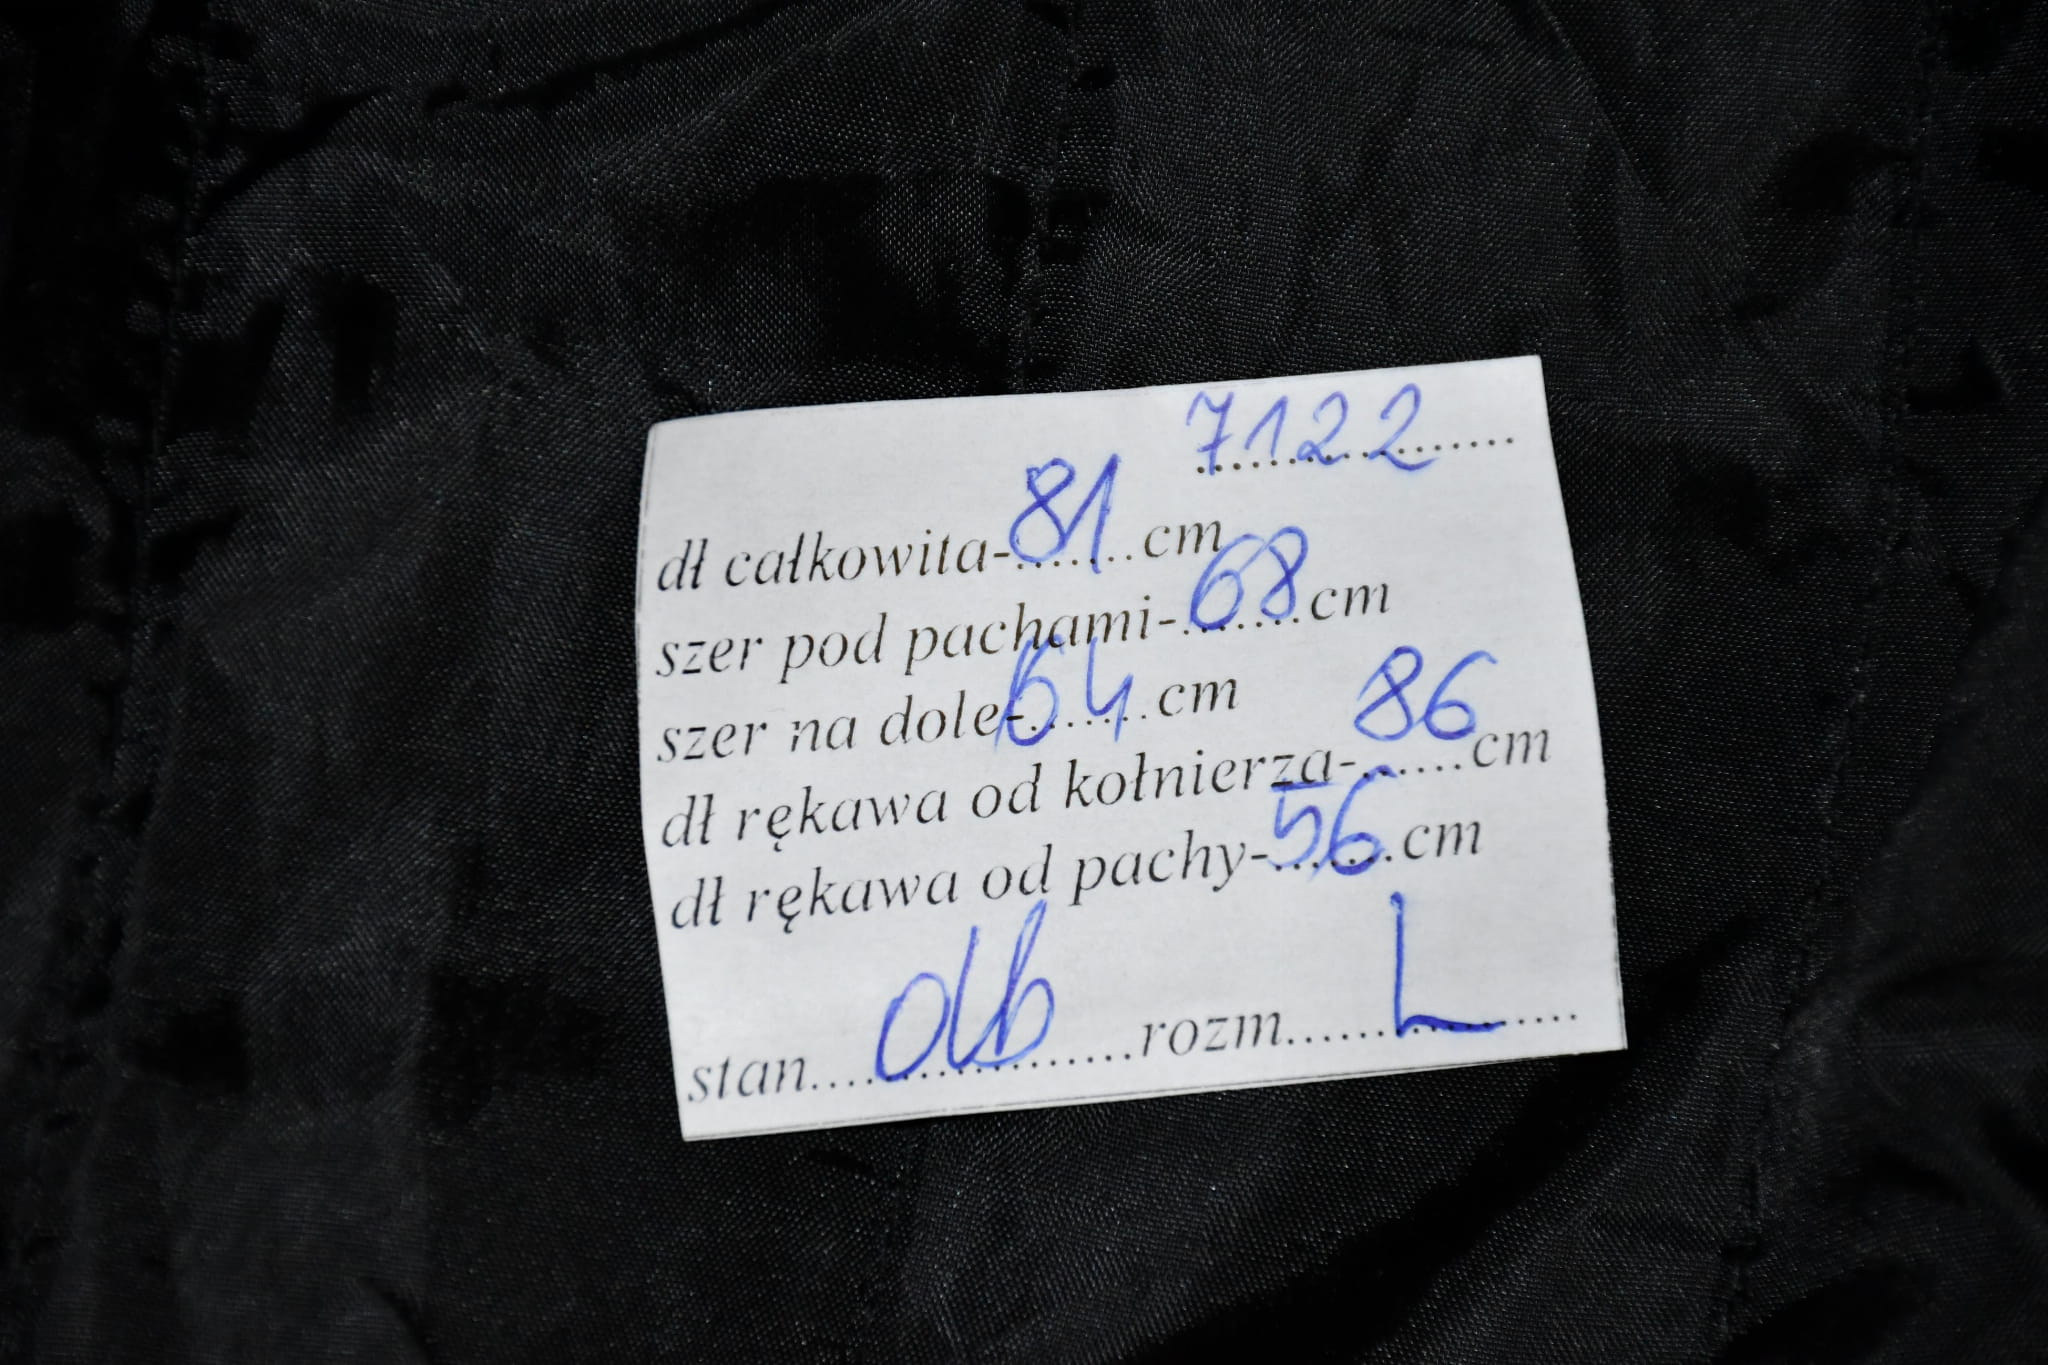 7122
dł całkowita-81cm
szer pod pachami-68cm
szer na dole-64cm
dł rękawa od kołnierza-86cm
dł rękawa od pachy-56cm
stan....db....rozm....L....